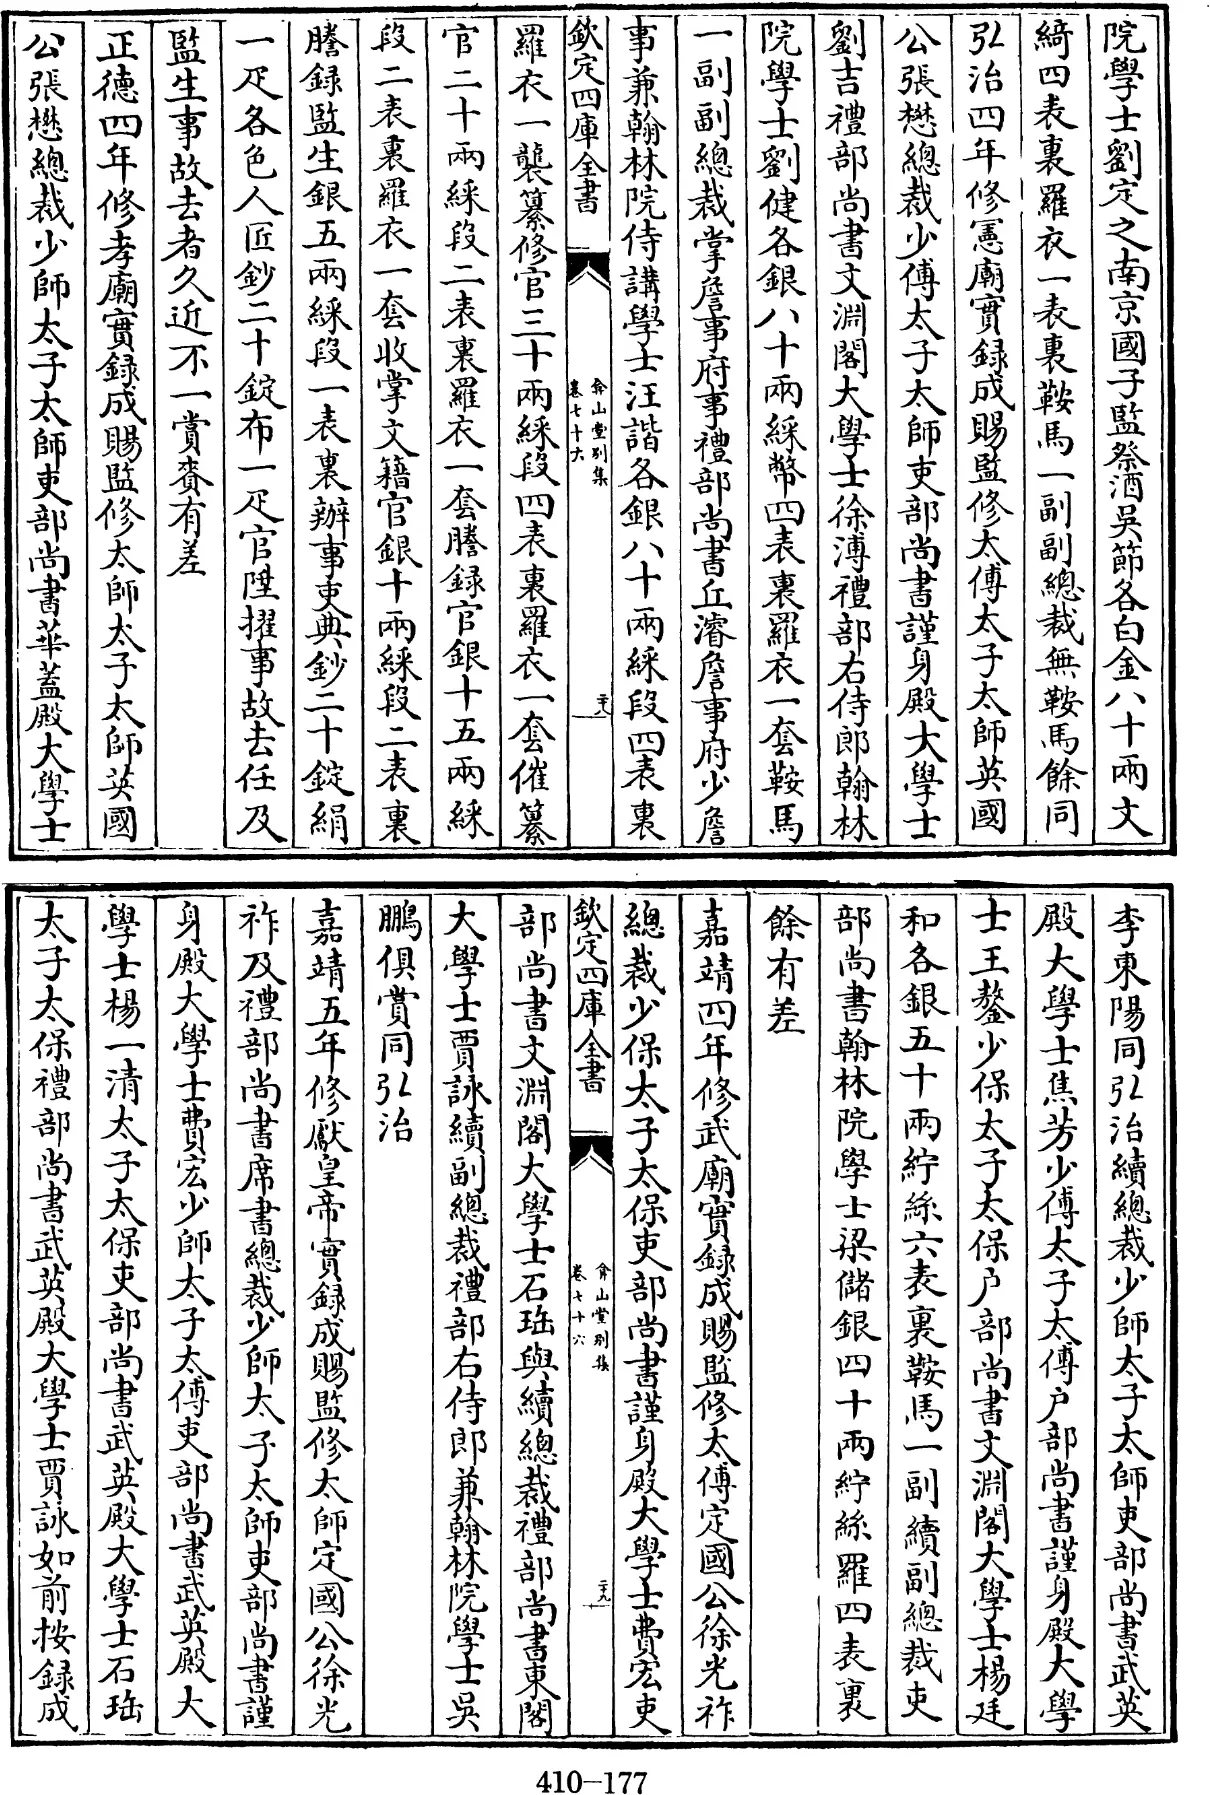 院學士劉定之南京國子監祭酒吳節各白金八十兩文
綺四表裏羅衣一表裏鞍馬一副副總裁無鞍馬餘同
弘治四年修憲廟實録成賜監修太傅太子太師英國
公張懋總裁少傅太子太師吏部尚書謹身殿大學士
劉吉禮部尚書文淵閣大學士徐溥禮部右侍郎翰林
院學士劉健各銀八十兩綵幣四表裏羅衣一套鞍馬
一副副總裁掌詹事府事禮部尚書丘濬詹事府少詹
事兼翰林院侍講學士汪諧各銀八十兩綵段四表裏
欽定四庫全書
弇山堂别集
卷七十六
二十八
羅衣一襲纂修官三十兩綵段四表裏羅衣一套催纂
官二十兩綵段二表裏羅衣一套謄録官銀十五兩綵
段二表裏羅衣一套收掌文籍官銀十兩綵段二表裏
謄録監生銀五兩綵段一表裏辦事吏典鈔二十錠絹
一疋各色人匠鈔二十錠布一疋官陞擢事故去任及
監生事故去者久近不一賞賚有差
正德四年修孝廟實録成賜監修太師太子太師英國
公張懋總裁少師太子太師吏部尚書華蓋殿大學士
李東陽同弘治續總裁少師太子太師吏部尚書武英
殿大學士焦芳少傅太子太傅户部尚書謹身殿大學
士王鏊少保太子太保户部尚書文淵閣大學士楊廷
和各銀五十兩紵絲六表裏鞍馬一副續副總裁吏
部尚書翰林院學士梁儲銀四十兩紵絲羅四表裏
餘有差
嘉靖四年修武廟實録成賜監修太傅定國公徐光祚
總裁少保太子太保吏部尚書謹身殿大學士費宏吏
欽定四庫全書
弇山堂别集
卷七十六
二十九
部尚書文淵閣大學士石珤與續總裁禮部尚書東閣
大學士賈詠續副總裁禮部右侍郎兼翰林院學士吳
鵬俱賞同弘治
嘉靖五年修獻皇帝實録成賜監修太師定國公徐光
祚及禮部尚書席書總裁少師太子太師吏部尚書謹
身殿大學士費宏少師太子太傅吏部尚書武英殿大
學士楊一清太子太保吏部尚書武英殿大學士石珤
太子太保禮部尚書武英殿大學士賈詠如前按録成
410-177